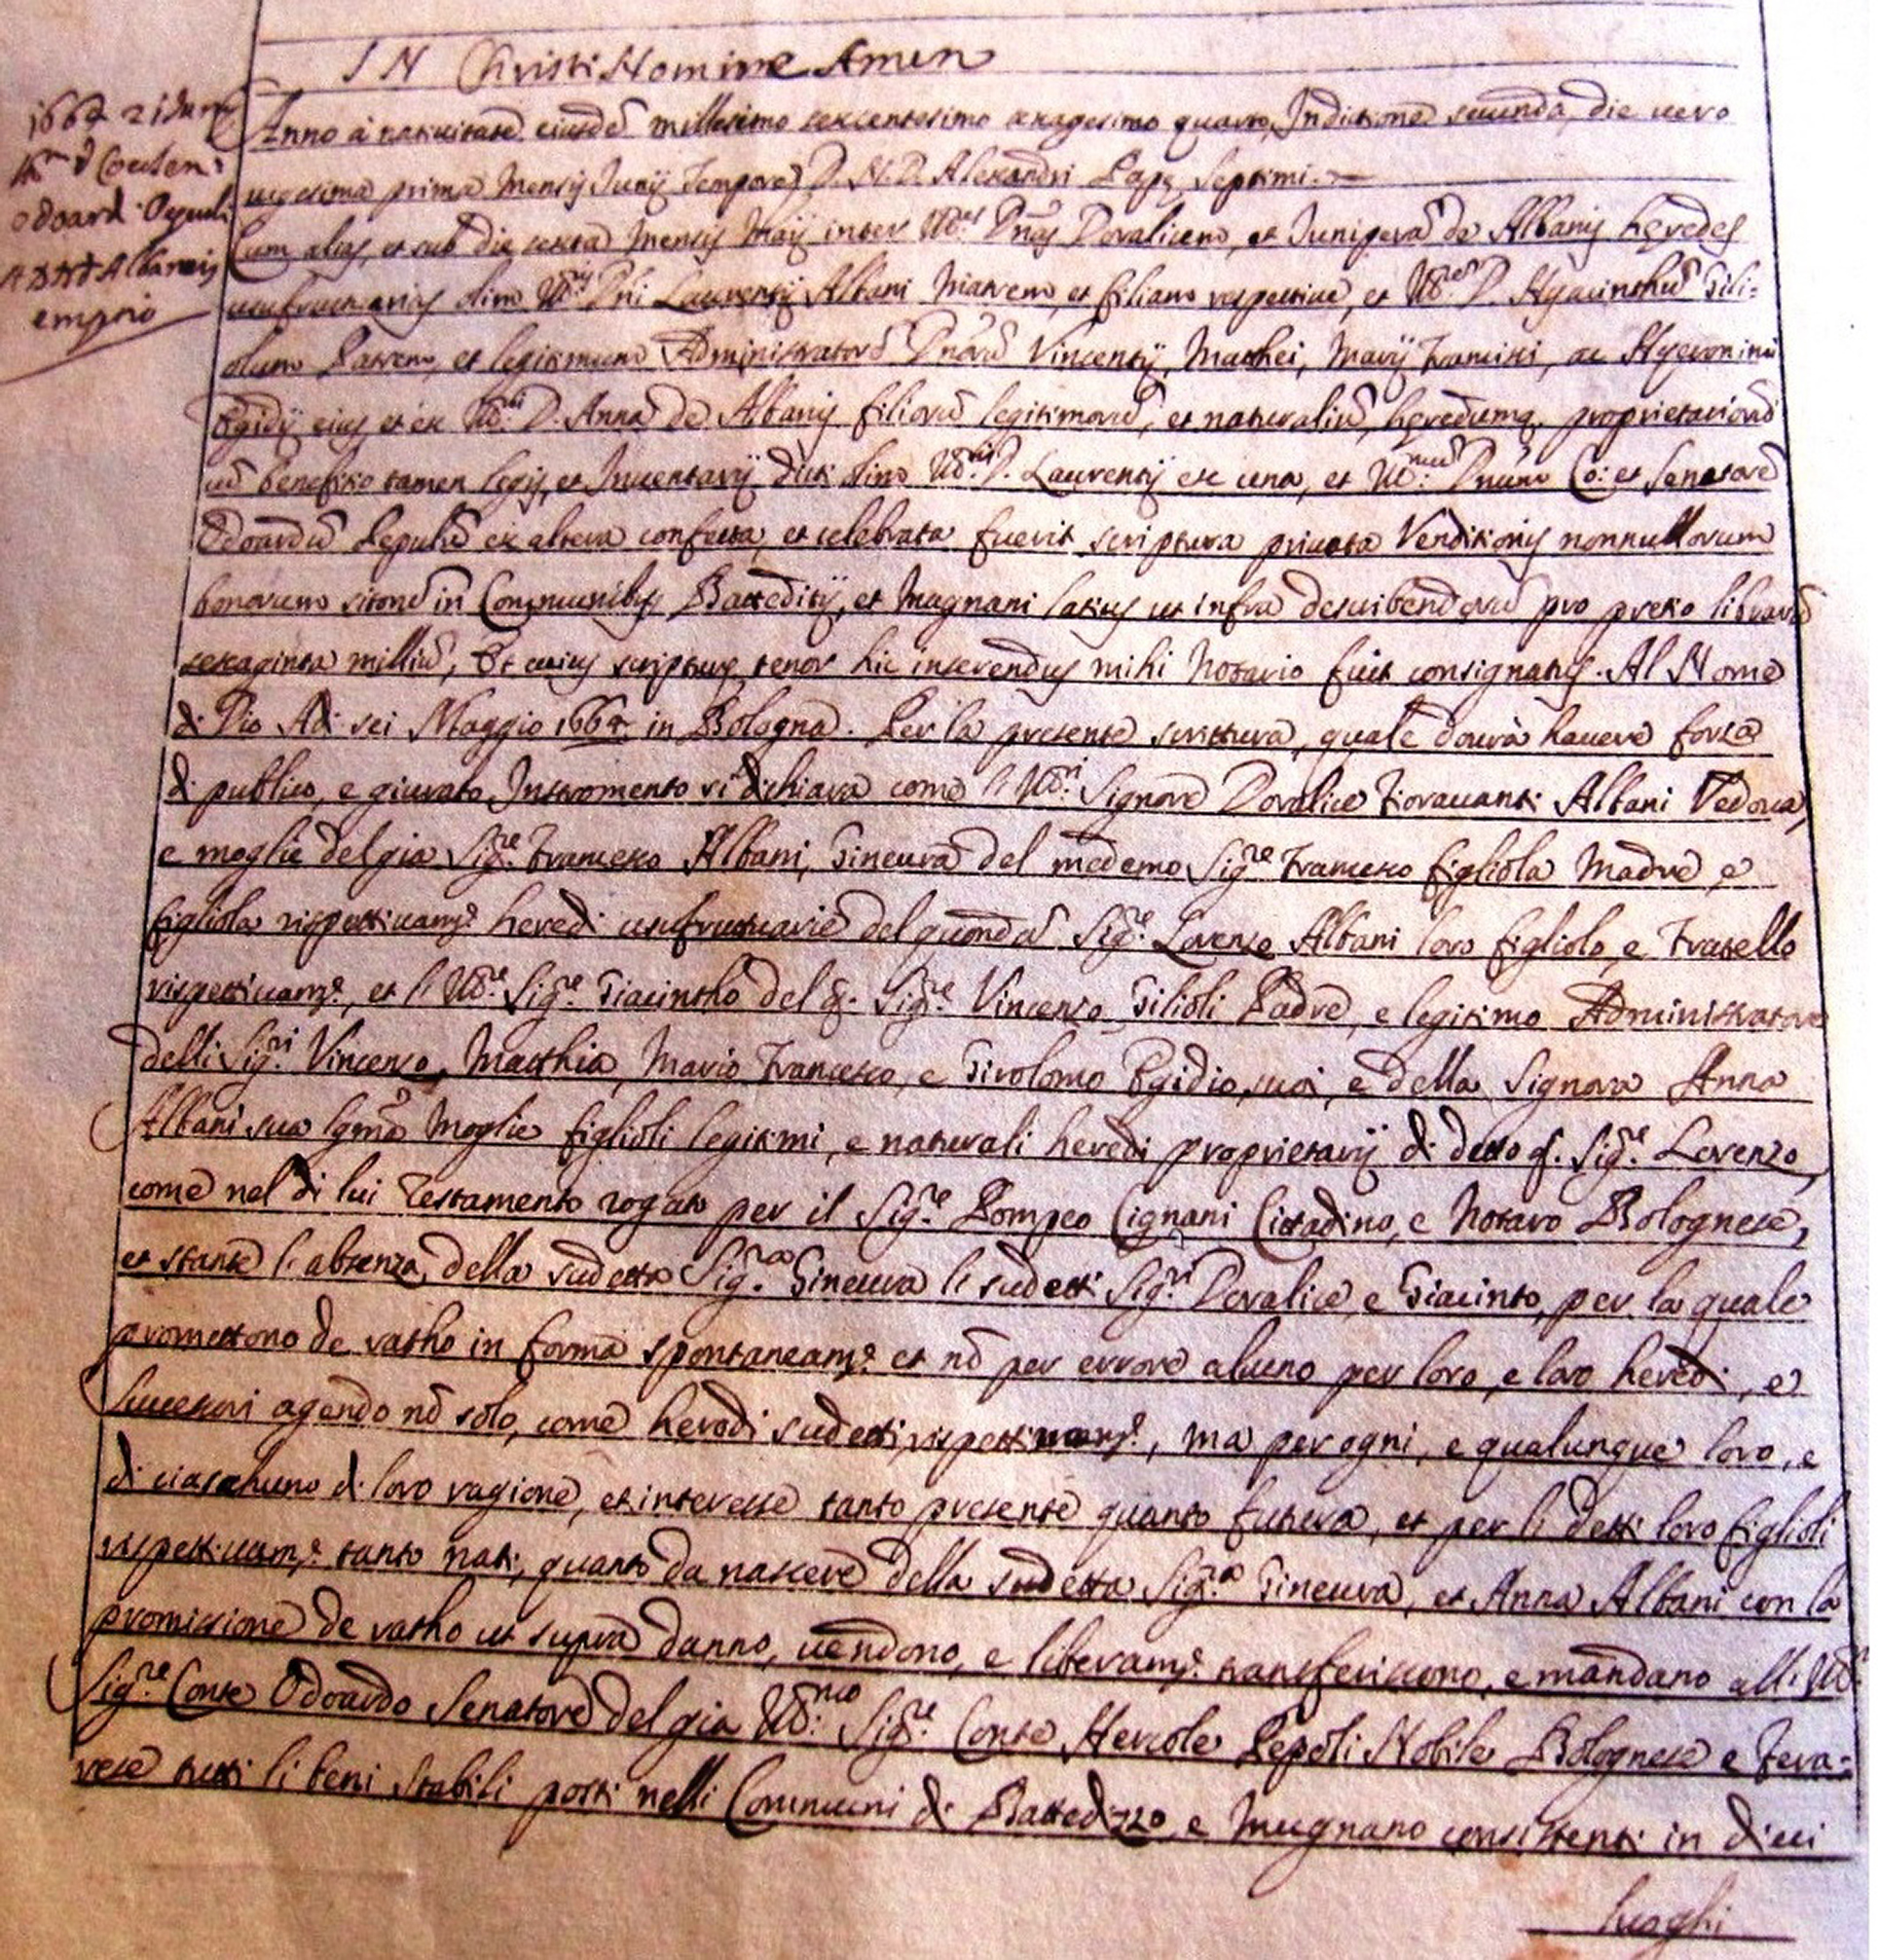 IN Christi Nomine Amen
1664 21 Jun
Odoard Pepuli
Albanis
emptio
Anno à nativitate eiusdē millesimo sexcentesimo sexagesimo quarto, Indictione secunda, die vero
vigesima prima Mensis Junij Tempore D. N. D. Alexandri Papę Septimi.
Cum alias, et sub die sexta Mensis Maij inter Ill.es Dnās Doralicem, et Juniperā de Albanis hęredes
usufructuarias olim Ill.ris Dni Laurentij Albani Matrem, et filiam respective, et Ill.rem D. Hyacinthū Gili-
olum Patrem, et legitimum Administratorē Dnōrū Vincentij, Mathei, Marij Francisci, ac Hyeronimi
Egidij eius et ex Ill.ri D. Anna de Albanis filiorū legitimorū, et naturaliū, hęredumq. proprietariorū
cū benefitio tamen legis, et Inventarij dicti olim Ill.ris D. Laurentij ex una, et Ill.mum Dnum Co: et Senatorē
Odoardū Pepulū ex altera confecta, et celebrata fuerit scriptura privata Venditionis nonnullorum
bonorum sitorū in Communibus Batteditij, et Mugnani latius ut infra describendorū pro pretio librarū
sexaginta milliū, Et cuius scripturę tenor hic inserendus mihi Notario fuit consignatus. Al Nome
di Dio Adi sei Maggio 1664 in Bologna. Per la presente scrittura, quale dovrà havere forza
di publico, e giurato Instromento si dichiara come l'Ill.ri Signore Doralice Fioravanti Albani Vedova,
e moglie del gia Sig.re Francesco Albani, Ginevra del medemo Sig.re Francesco figliola Madre, e
figliola rispettivam.e heredi usufruttuarie del quondā Sig.re Lorenzo Albani loro figliolo, e Fratello
rispettivam.e, et l'Ill.re Sig.re Giacintho del q. Sig.re Vincenzo Gilioli Padre, e legitimo Administratore
delli Sig.ri Vincenzo, Matthia, Mario Francesco, e Girolomo Egidio, suoi, e della Signora Anna
Albani sua lgma Moglie figlioli legitimi, e naturali heredi proprietarij di detto q. Sig.re Lorenzo,
come nel di lui Testamento rogato per il Sig.re Pompeo Cignani Cittadino, e Notaro Bolognese,
et stante l'absenza della sudetta Sig.ra Ginevra li sudetti Sig.ri Doralice, e Giacinto, per la quale
promettono de ratho in forma spontaneam.e et nō per errore alcuno per loro, e loro heredi, e
successori agendo nō solo, come heredi sudetti rispettivam.e, ma per ogni, e qualunque loro, e
di ciaschuno di loro ragione, et interesse tanto presente quanto futura, et per li detti loro figlioli
rispettivam.e tanto nati, quanto da nascere della sudetta Sig.ra Ginevra, et Anna Albani con la
promissione de ratho ut supra danno, vendono, e liberam.e transferiscono, e mandano all'Ill.
Sig.re Conte Odoardo Senatore del gia Ill.mo Sig.re Conte Hercole Pepoli Nobile Bolognese e Fera-
rese tutti li beni stabili posti nelli Communi di Battedizzo, e Mugnano consistenti in dieci
luoghi